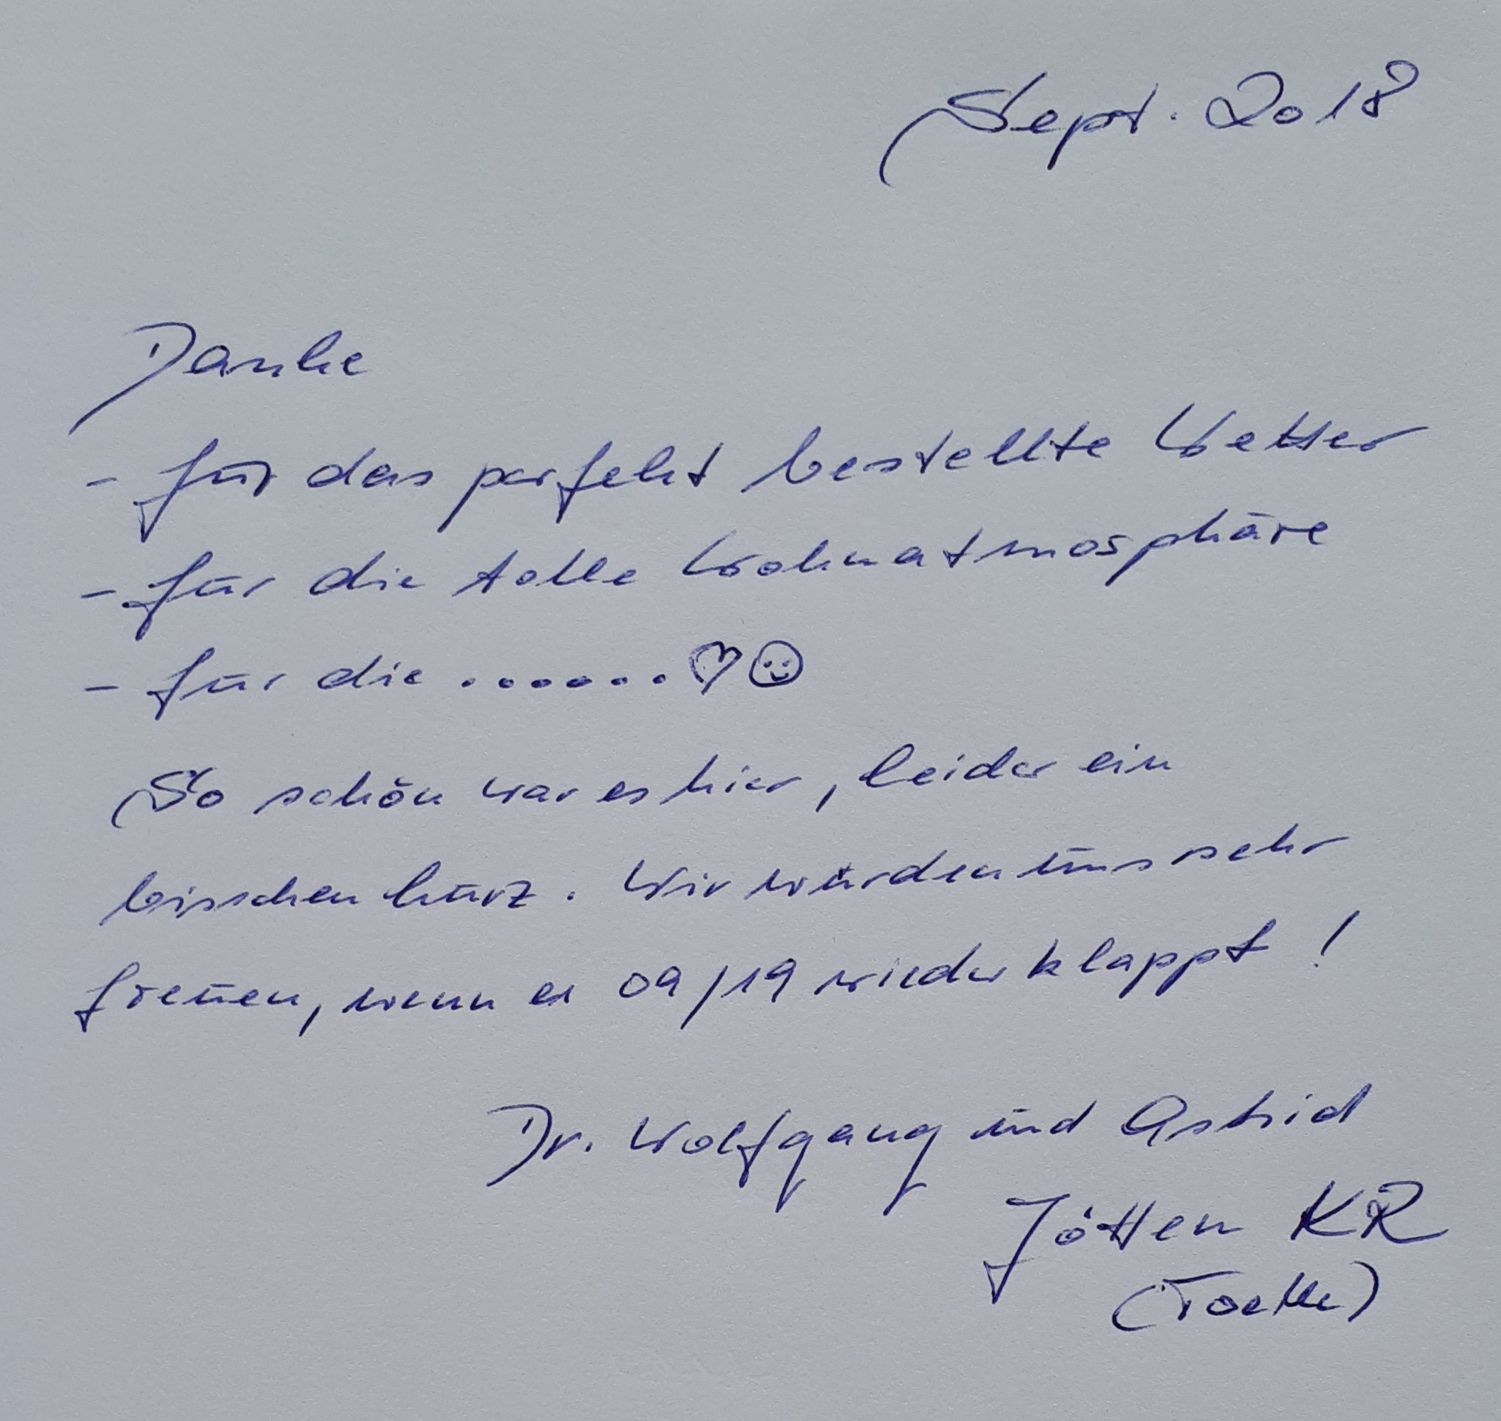 Sept. 2018
Danke
- für das perfekt bestellte Wetter
- für die tolle Wohnatmosphäre
- für die .......♡☺
So schön war es hier, leider ein
bisschen kurz. Wir würden uns sehr
freuen, wenn es 09/19 wieder klappt!
Dr. Wolfgang und Astrid
Jötten KR